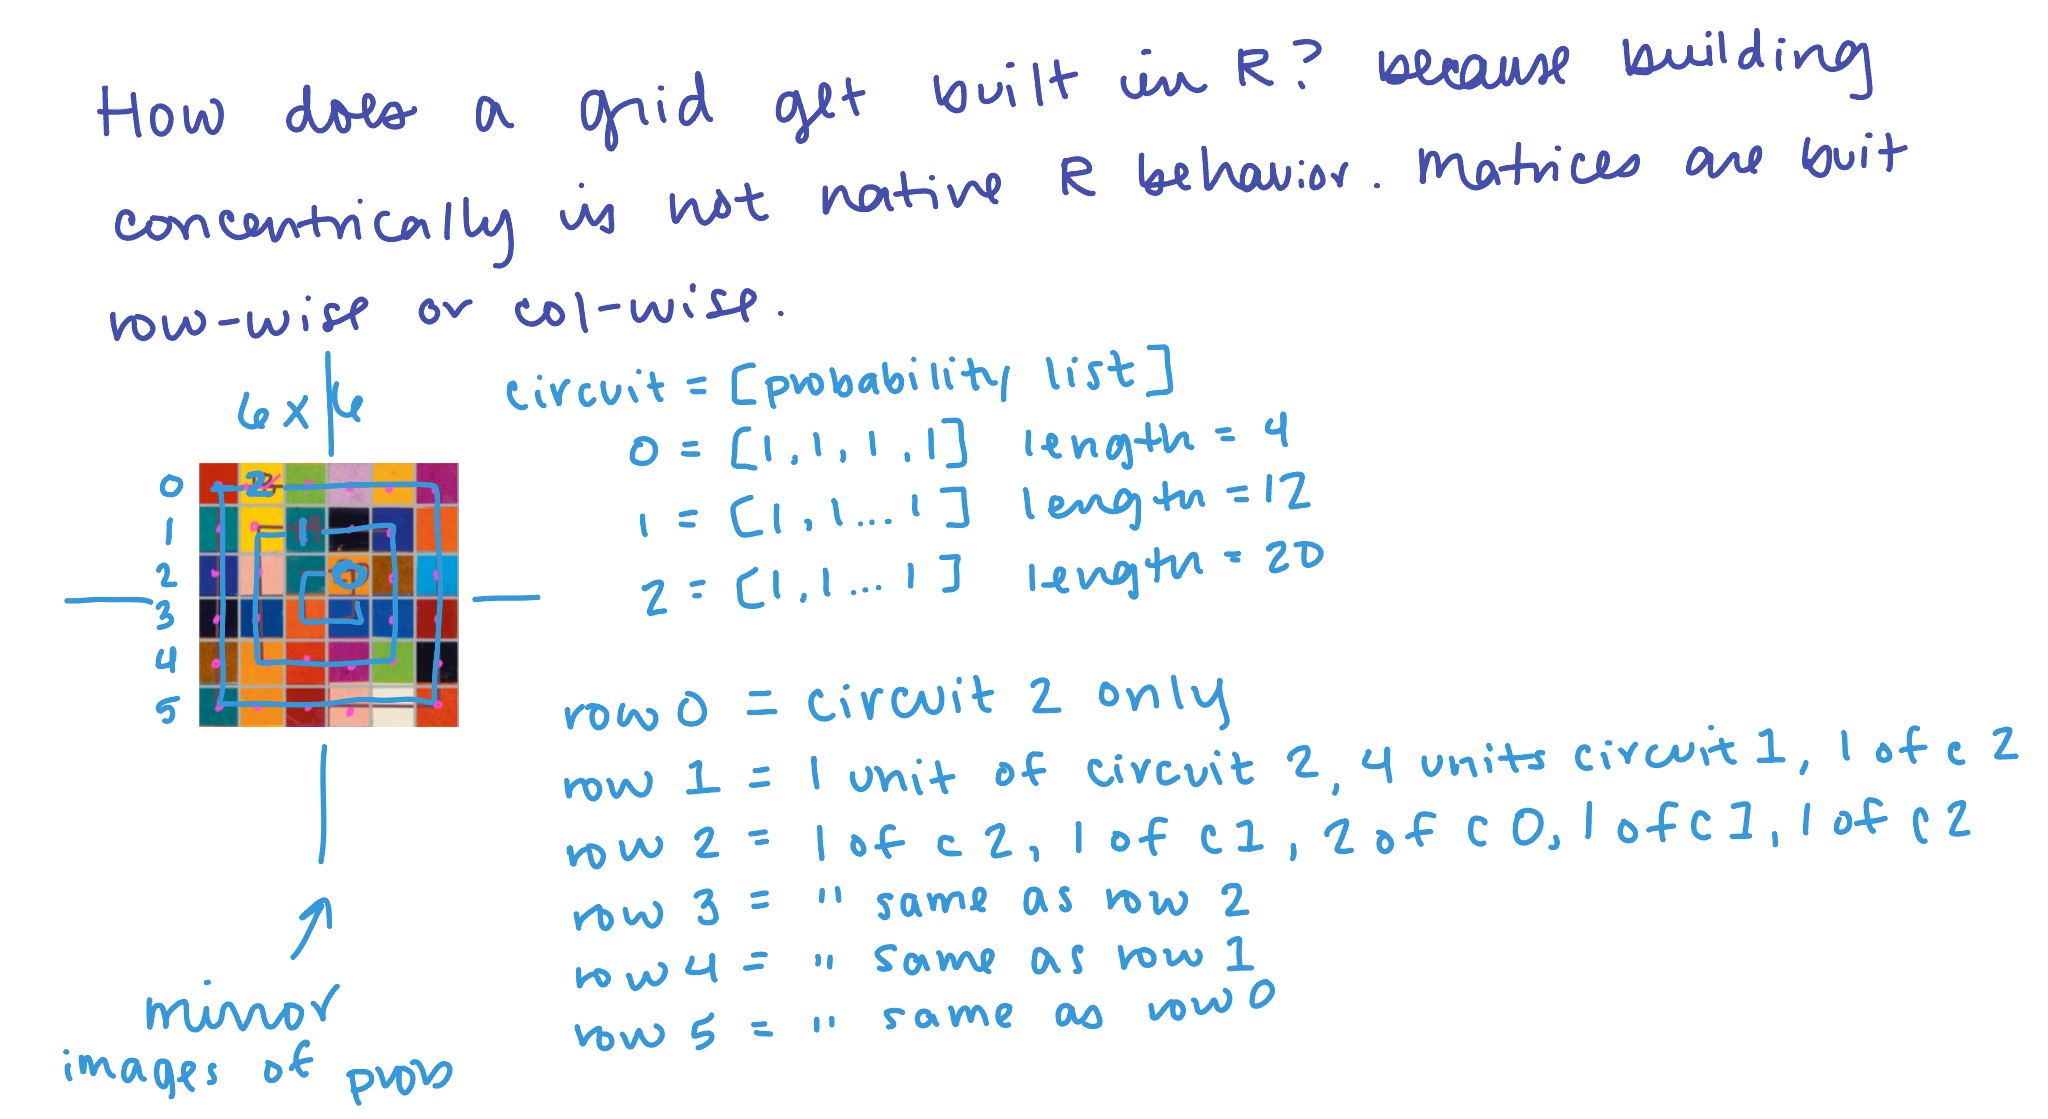 How does a grid get built in R? because building
concentrically is not native R behavior. Matrices are buit
row-wise or col-wise.
6 x 6
circuit = [probability list]
0 = [1, 1, 1, 1] length = 4
1 = [1, 1... 1] length = 12
2 = [1, 1... 1] length = 20
0
1
2
3
4
5
2
1
0
row 0 = circuit 2 only
row 1 = 1 unit of circuit 2, 4 units circuit 1, 1 of c 2
row 2 = 1 of c 2, 1 of c 1, 2 of c 0, 1 of c 1, 1 of c 2
row 3 = " same as row 2
row 4 = " same as row 1
row 5 = " same as row 0
mirror
images of prob